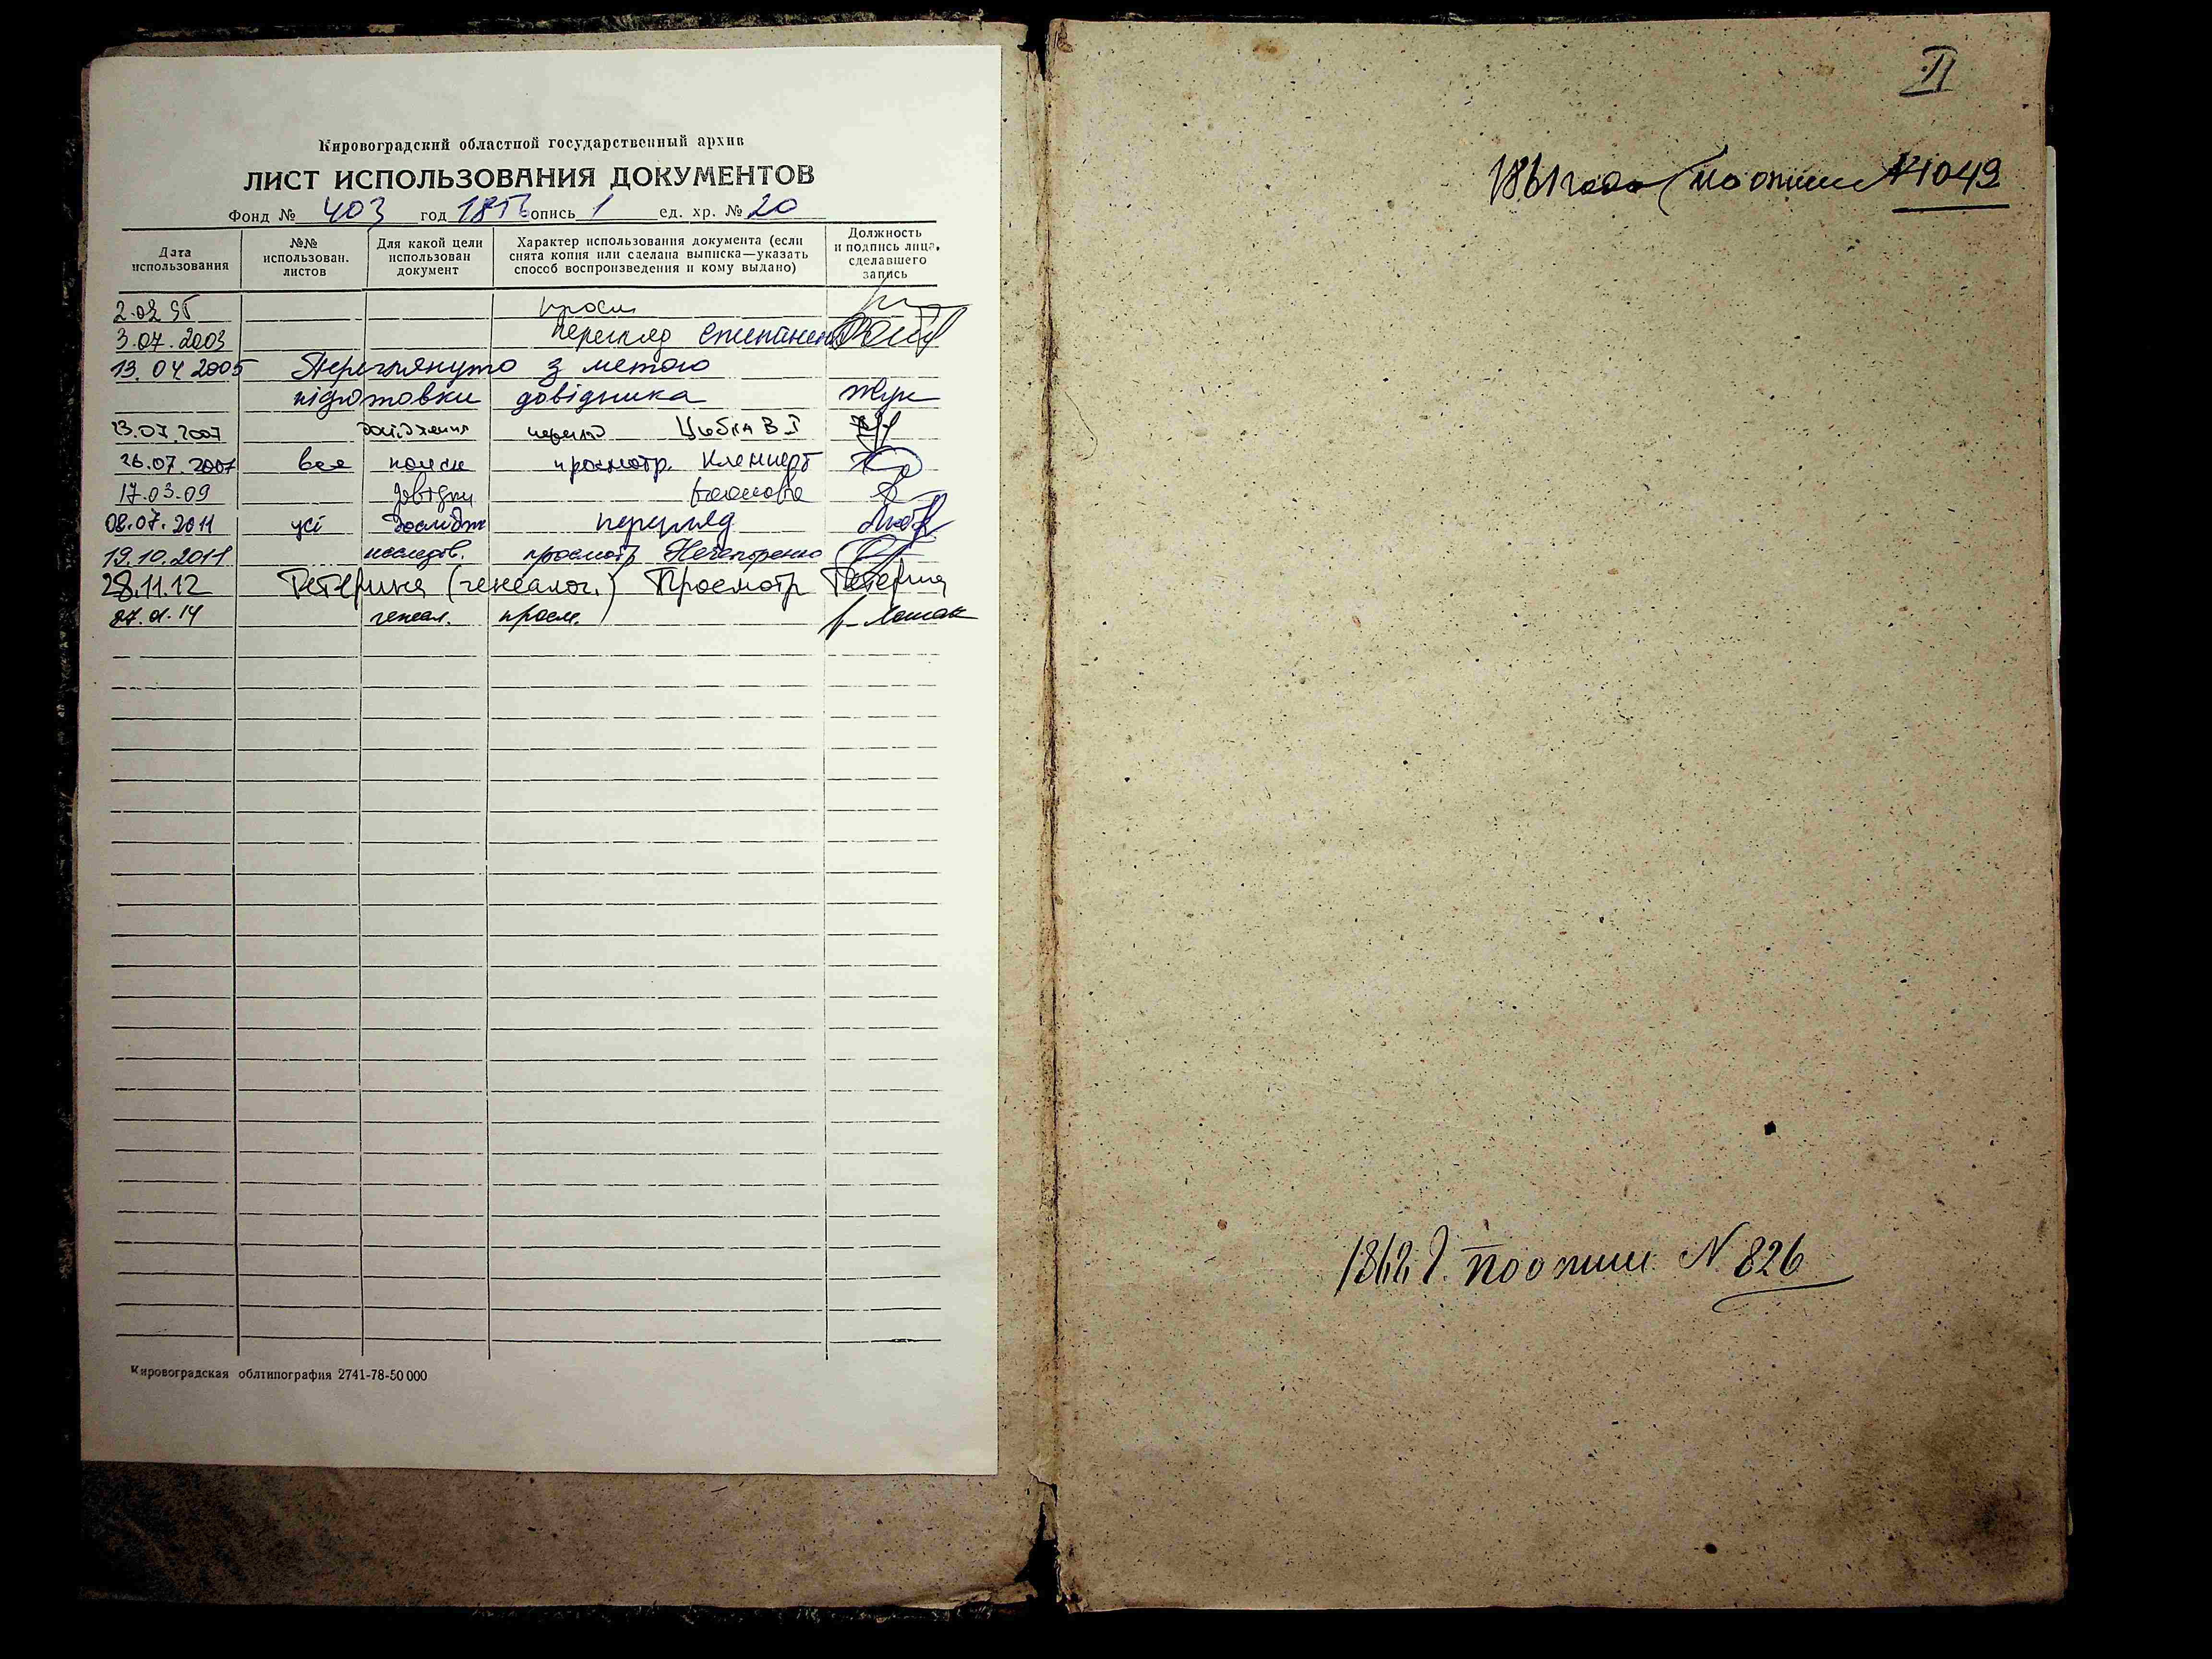 Кировоградский областной государственный архив
ЛИСТ ИСПОЛЬЗОВАНИЯ ДОКУМЕНТОВ
Фонд № 403 год опись 1 ед. хр. № 20
Дата использования
№№ использован. листов
Для какой цели использован документ
Характер использования документа (если снята копия или сделана выписка—указать способ воспроизведения и кому выдано)
Должность и подпись лица, сделавшего запись
просм
3.07.2003 перегляд
13.04 2005 Переглянуто з метою
підготовки довідника Жук
23.07.2007 Цибка В І
26.07.2007 все поиск просмотр.
17.03.09 довідки
08.07.2011 усі дослідж перегляд
19.10.2011 исследов. просмотр Нечепоренко
28.11.12 (генеалог.) Просмотр
генеал. просм.
Кировоградская облтипография 2741-78-50 000
II
1861 года по описи № 1049
по описи N 826